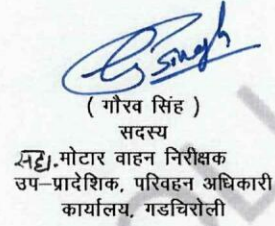 ( गौरव सिंह )
सदस्य
सहा.मोटार वाहन निरीक्षक
उप–प्रादेशिक, परिवहन अधिकारी
कार्यालय, गडचिरोली